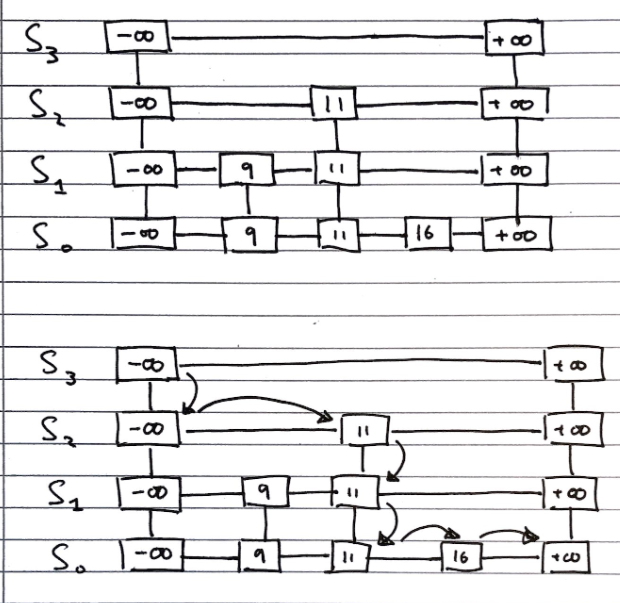 S₃ -∞ +∞
S₂ -∞ 11 +∞
S₁ -∞ 9 11 +∞
S₀ -∞ 9 11 16 +∞
S₃ -∞ +∞
S₂ -∞ 11 +∞
S₁ -∞ 9 11 +∞
S₀ -∞ 9 11 16 +∞